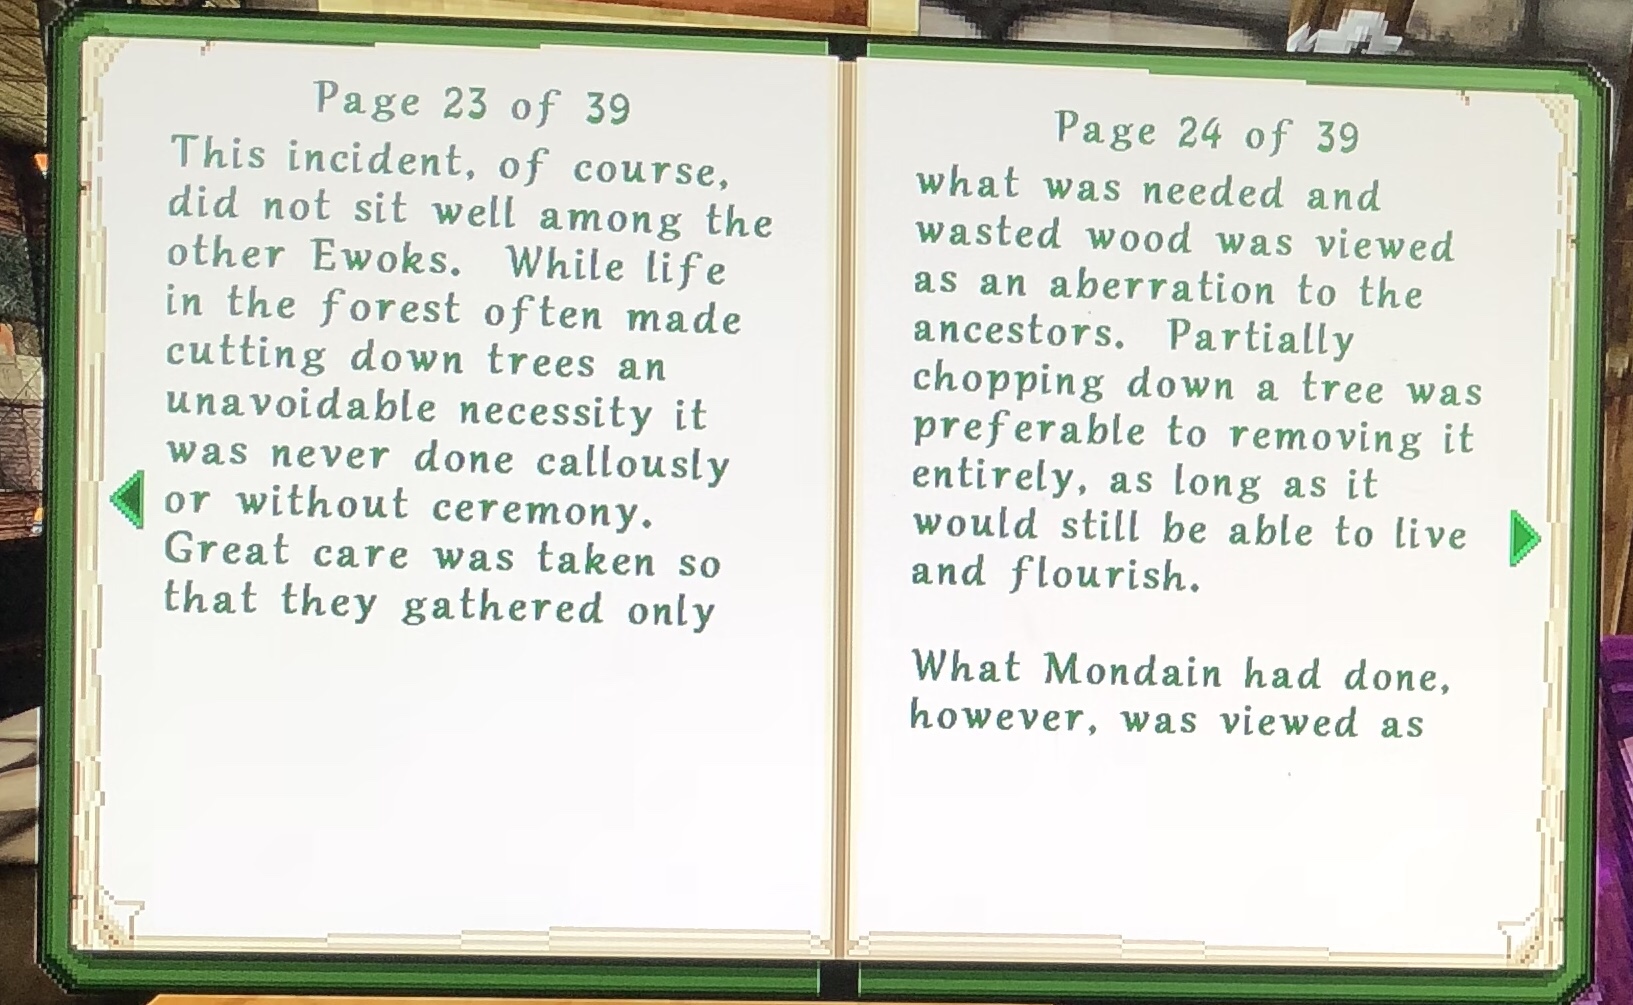 Page 23 of 39
This incident, of course,
did not sit well among the
other Ewoks.  While life
in the forest often made
cutting down trees an
unavoidable necessity it
was never done callously
or without ceremony.
Great care was taken so
that they gathered only
Page 24 of 39
what was needed and
wasted wood was viewed
as an aberration to the
ancestors.  Partially
chopping down a tree was
preferable to removing it
entirely, as long as it
would still be able to live
and flourish.
What Mondain had done,
however, was viewed as